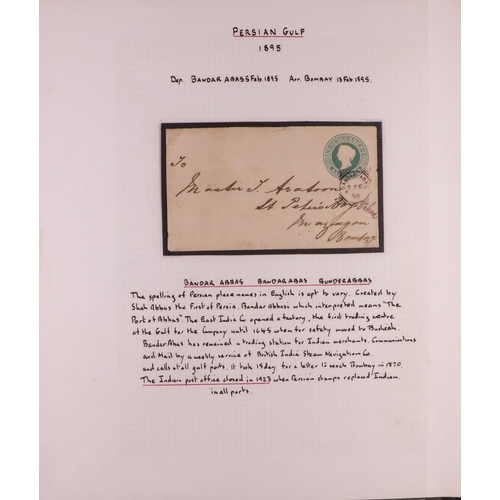 PERSIAN GULF
1895
Dep. BANDAR ABAS 5 Feb 1895 Arr. BOMBAY 13 Feb 1895.
INDIA POSTAGE
To
Master T. Aratoon
St Peter's Boy School
Mazagon
Bombay
BANDAR ABBAS BANDARABAS BUNDERABBAS
The spelling of Persian place names in English is apt to vary. Created by
Shah Abbas the First of Persia. Bandar Abbasi which interpreted means "The
Port of Abbas". The East India Co opened a factory, the first trading centre
of the Gulf for the Company until 1645 when for safety moved to Busheah.
Bandar Abas has remained a trading station for Indian merchants. Communications
and Mail by a weekly service of British India Steam Navigation Co.
and calls at all gulf ports. It took 15 day for a letter to reach Bombay in 1870.
The Indian post office closed in 1923 when Persian stamps replaced Indian.
in all ports.